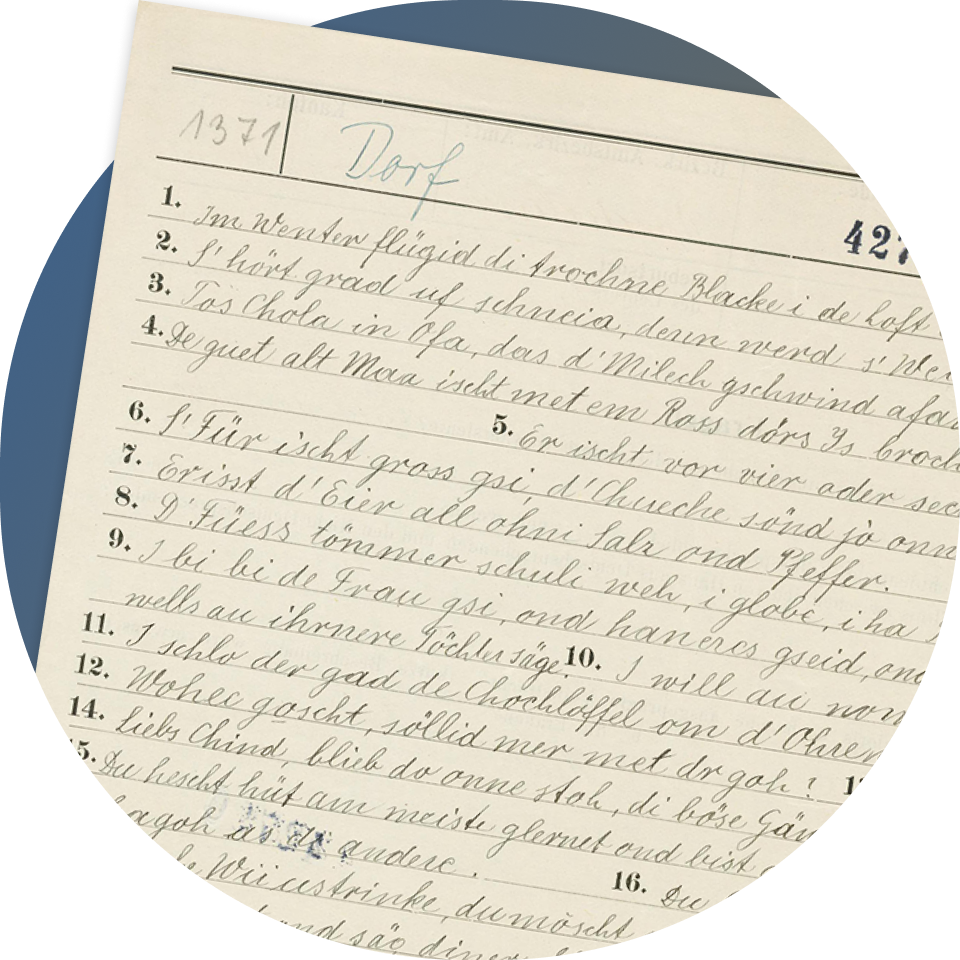 1371 Dorf
427
1. Im Wenter flügid di trochne Blacke i de Loft
2. S' hört grad uf schneia, denn werd s' We
3. Tös Chola in Ofa, das d' Milech gschwind afa
4. De guet alt Maa ischt met em Ross dörs Is broch
5. Er ischt vor vier oder sec
6. S' Für ischt gross gsi, d' Chueche sönd jò onn
7. Erisst d' Eier all ohni Salz ond Pfeffer.
8. D' Füess tömmer schuli weh, i globe, i ha
9. I bi bi de Frau gsi, ond haneres gseid, ond
wells au ihrnere Töchter säge. 10. I will au nom
11. I schlo der gad de Chochlöffel om d' Ohre
12. Wohee goscht, söllid mer met dr goh?
14. Liebs Chind, blieb do onne stoh, di böse Gän
15. Du hescht hüt am meiste glernet ond bist
agoh as di andere. 16. Du
Wii ustrinke, du möscht
ond säg diner